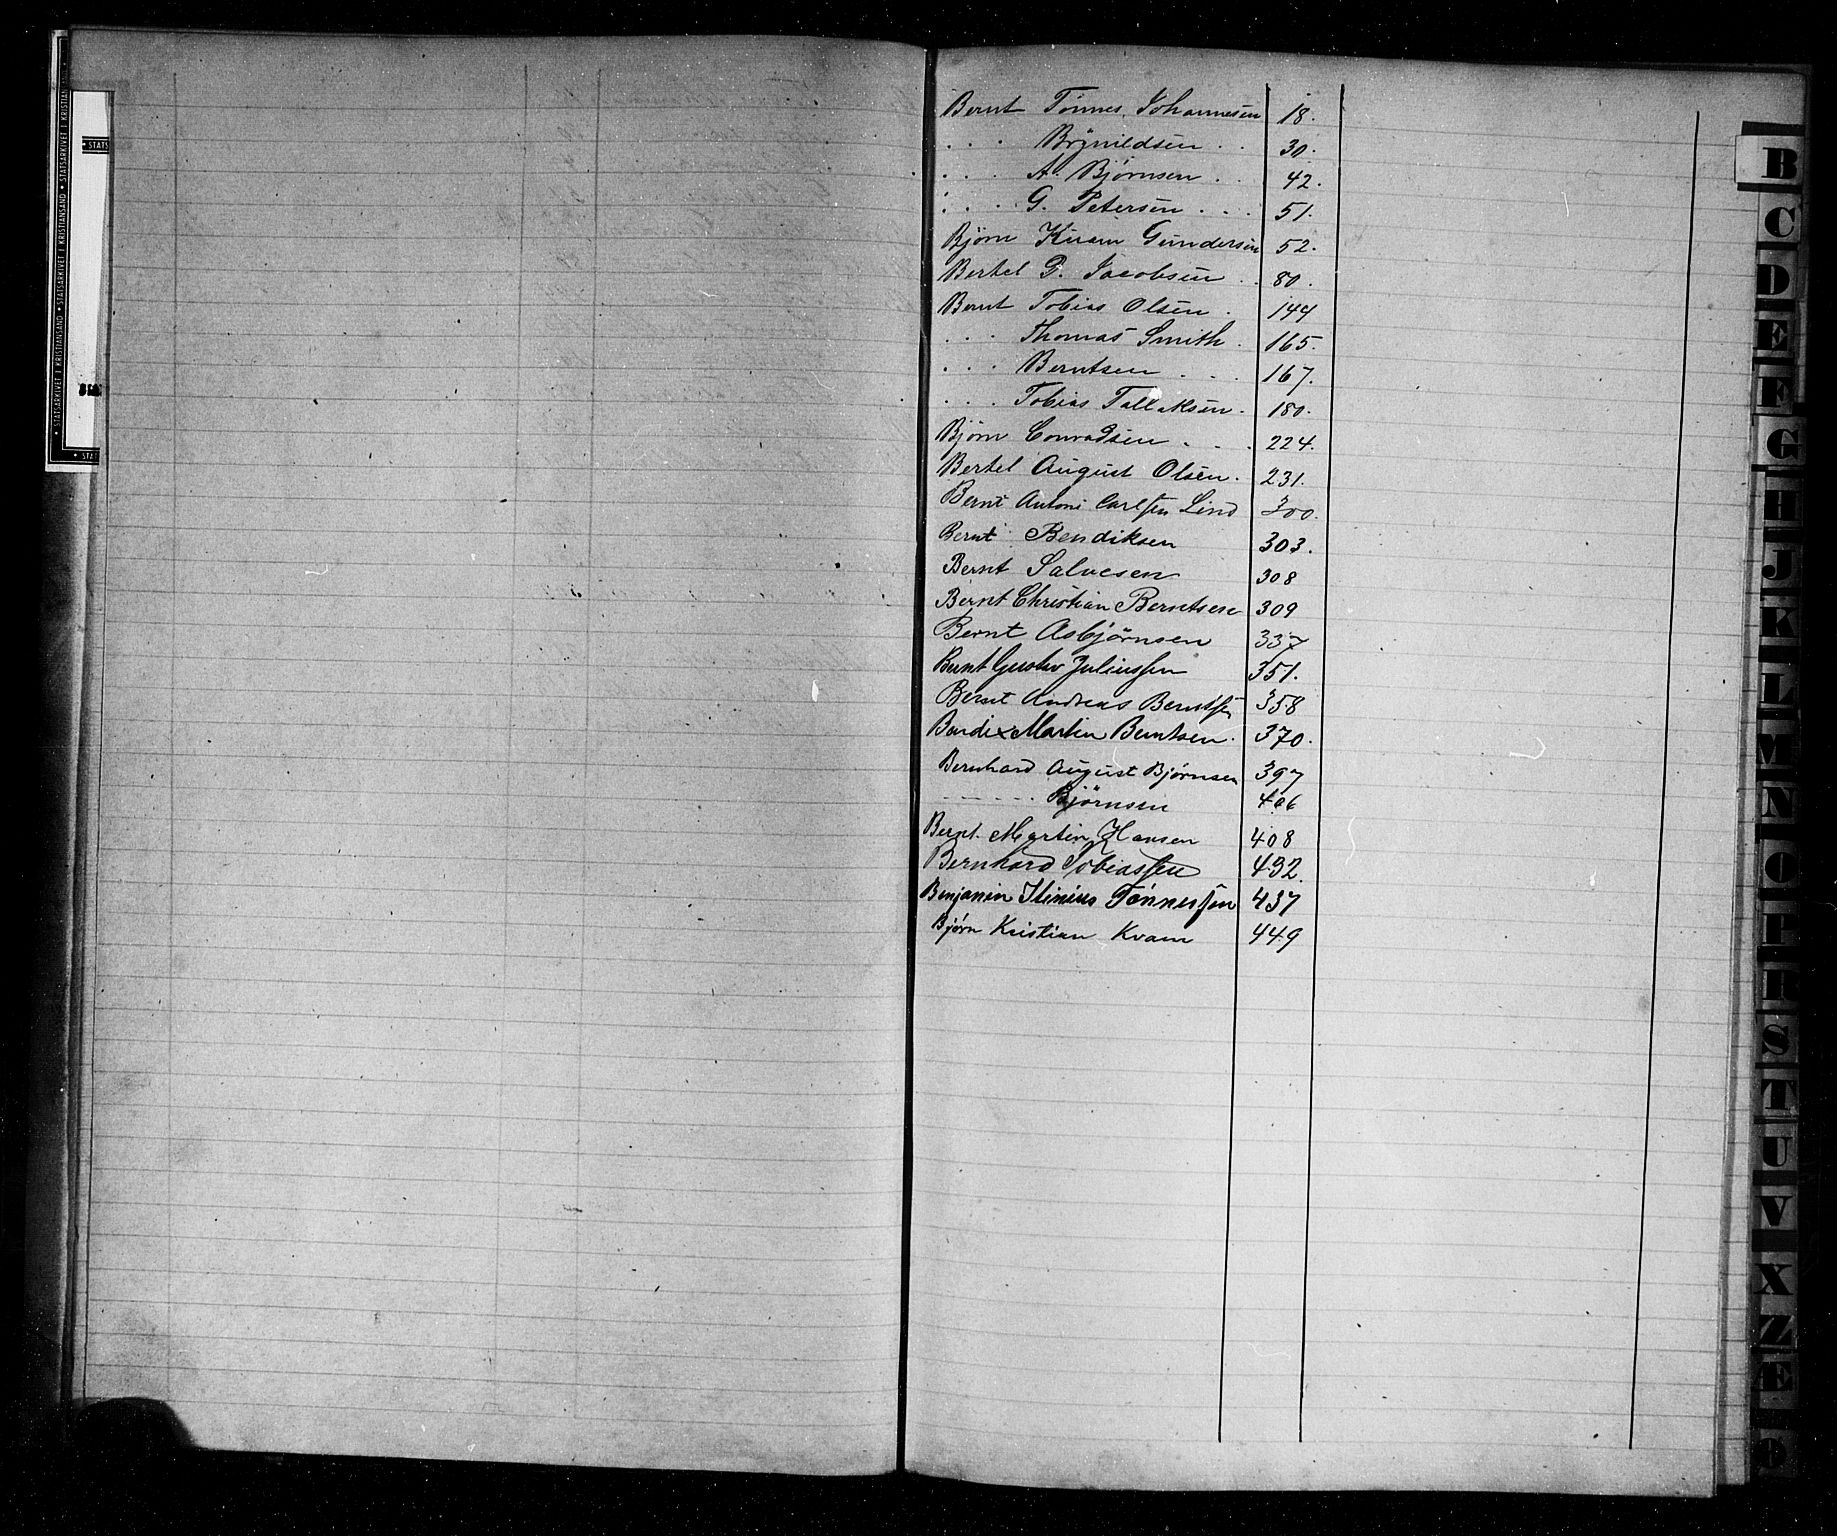 Bernt Tönnes Johannesen 18.
. . . Brynildsen . . 30.
. . . A. Björnsen . . 42.
. . . G. Petersen . . . 51.
Björn Kvam Gundersen 52.
Bertel P. Jacobsen . . 80.
Bernt Tobias Olsen . 144
. . . Thomas Smith . 165.
. . . Berntsen . . . 167.
. . . Tobias Tallaksen . 180.
Björn Conradsen . . . 224.
Bertel August Olsen . 231.
Bernt Antoni Carlsen Lind 300.
Bernt Bendiksen 303.
Bernt Salvesen 308
Bernt Christian Berntsen 309
Bernt Asbjörnsen 337
Bernt Gustav Juliussen 351.
Bernt Andreas Berntsen 358
Bendix Martin Berntsen . 370.
Bernhard August Bjørnsen 397
- - - - - - Bjørnsen 406
Bernt Martin Hansen 408
Bernhard Tobiassen 432.
Benjamin Tönnessen 437
Bjórn Kristian Kvam 449
B
C
D
E
F
G
H
J
K
L
M
N
O
P
R
S
T
U
V
X
Z
Æ
Ø
STATSARKIVET I KRISTIANSAND • STATSARKIVET I KRISTIANSAND • STATSARKIVET I KRISTIANSAND
• STATS
• STAT